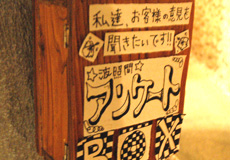 私達、お客様の意見を
聞きたいです!!
アンケート
BOX